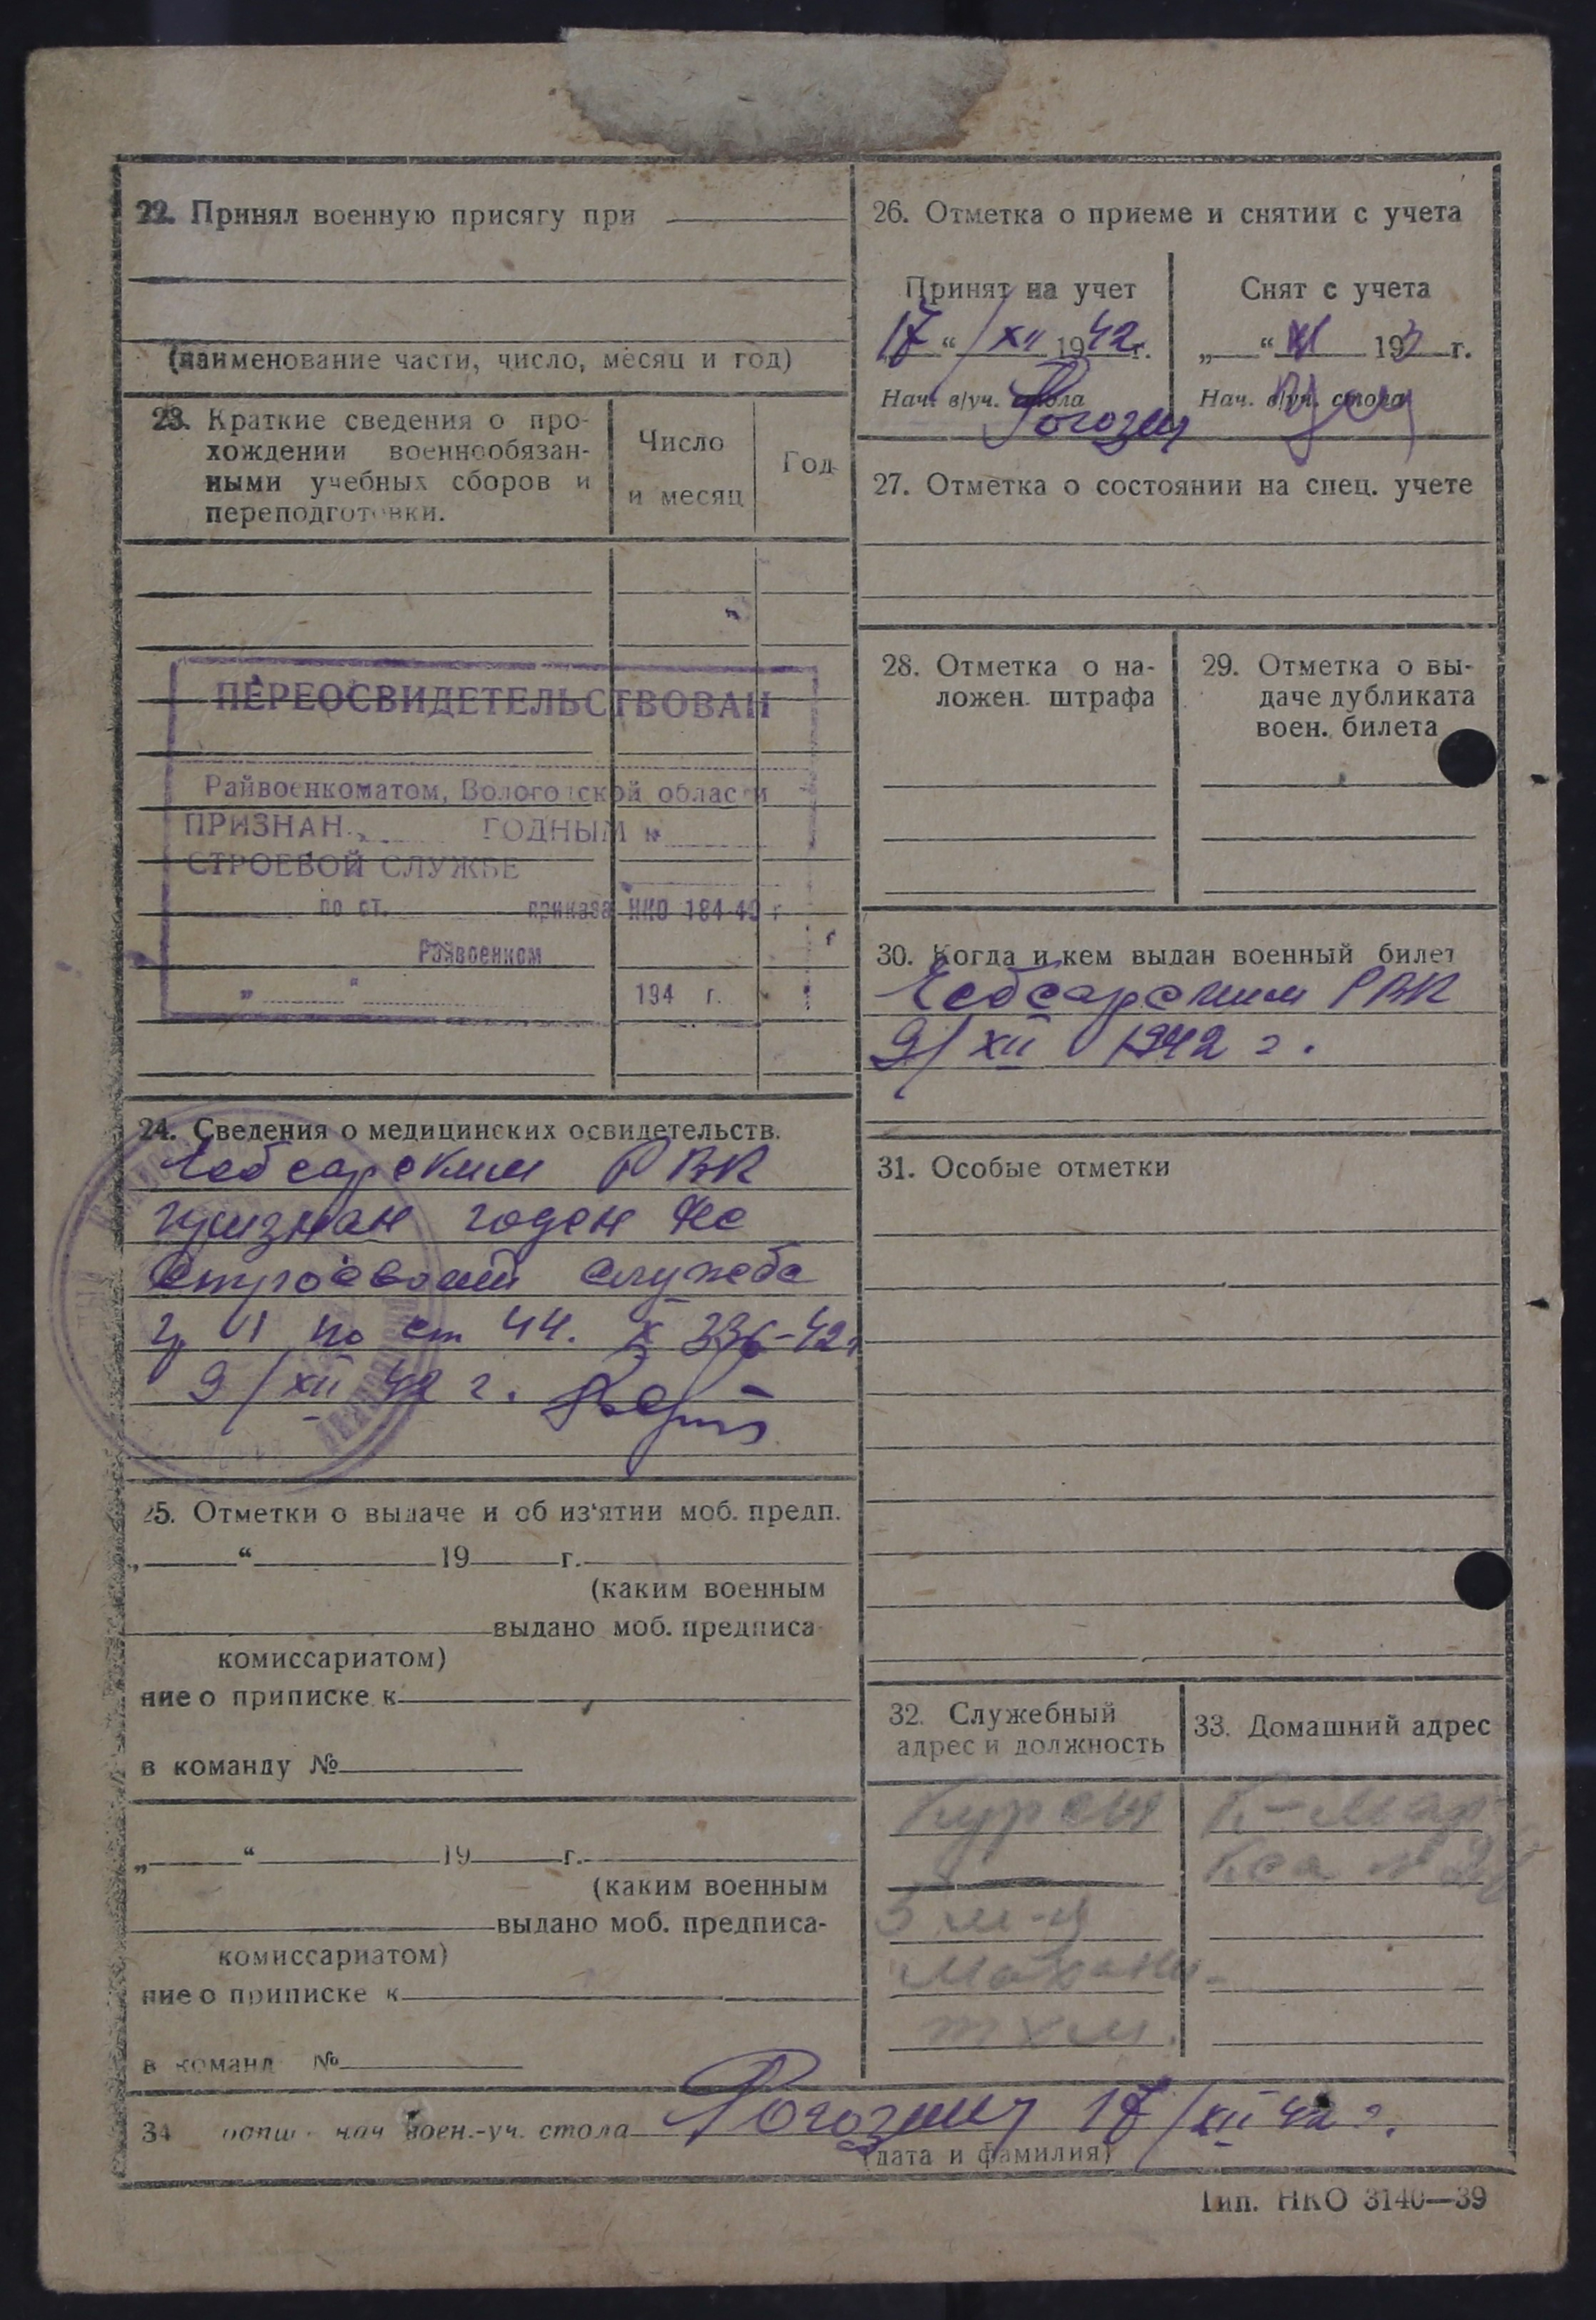 22. Принял военную присягу при
(наименование части, число, месяц и год)
23. Краткие сведения о про-
хождении военнообязан-
ными учебных сборов и
переподготовки.
Число
и месяц
Год
ПЕРЕОСВИДЕТЕЛЬСТВОВАН
Райвоенкоматом, Вологодской области
ПРИЗНАН ГОДНЫМ к
СТРОЕВОЙ СЛУЖБЕ
по ст. приказа НКО 184-40 г
Райвоенком
„ “ 194 г.
24. Сведения о медицинских освидетельств.
Чебсарским РВК
признан годен не
строевой служба
гр II по ст 44. 336-42г
9/XII 42 г.
25. Отметки о выдаче и об из‘ятии моб. предп.
„ “ 19 г.
(каким военным
выдано моб. предписа-
комиссариатом)
ние о приписке к
в команду №
„ “ 19 г.
(каким военным
выдано моб. предписа-
комиссариатом)
ние о приписке к
в команд №
26. Отметка о приеме и снятии с учета
Принят на учет
17 “ / XII 1942 г.
Нач. в/уч. стола
Рогозин
Снят с учета
„ “ XI 193 г.
Нач. в/уч. стола
27. Отметка о состоянии на спец. учете
28. Отметка о на-
ложен. штрафа
29. Отметка о вы-
даче дубликата
воен. билета
30. Когда и кем выдан военный билет
Чебсарским РВК
9/XII 1942 г.
31. Особые отметки
32. Служебный
адрес и должность
5 м-ц
33. Домашний адрес
34 нач воен.-уч. стола Рогозин 17/XII 42 г.
(дата и фамилия)
Тип. НКО 3140—39